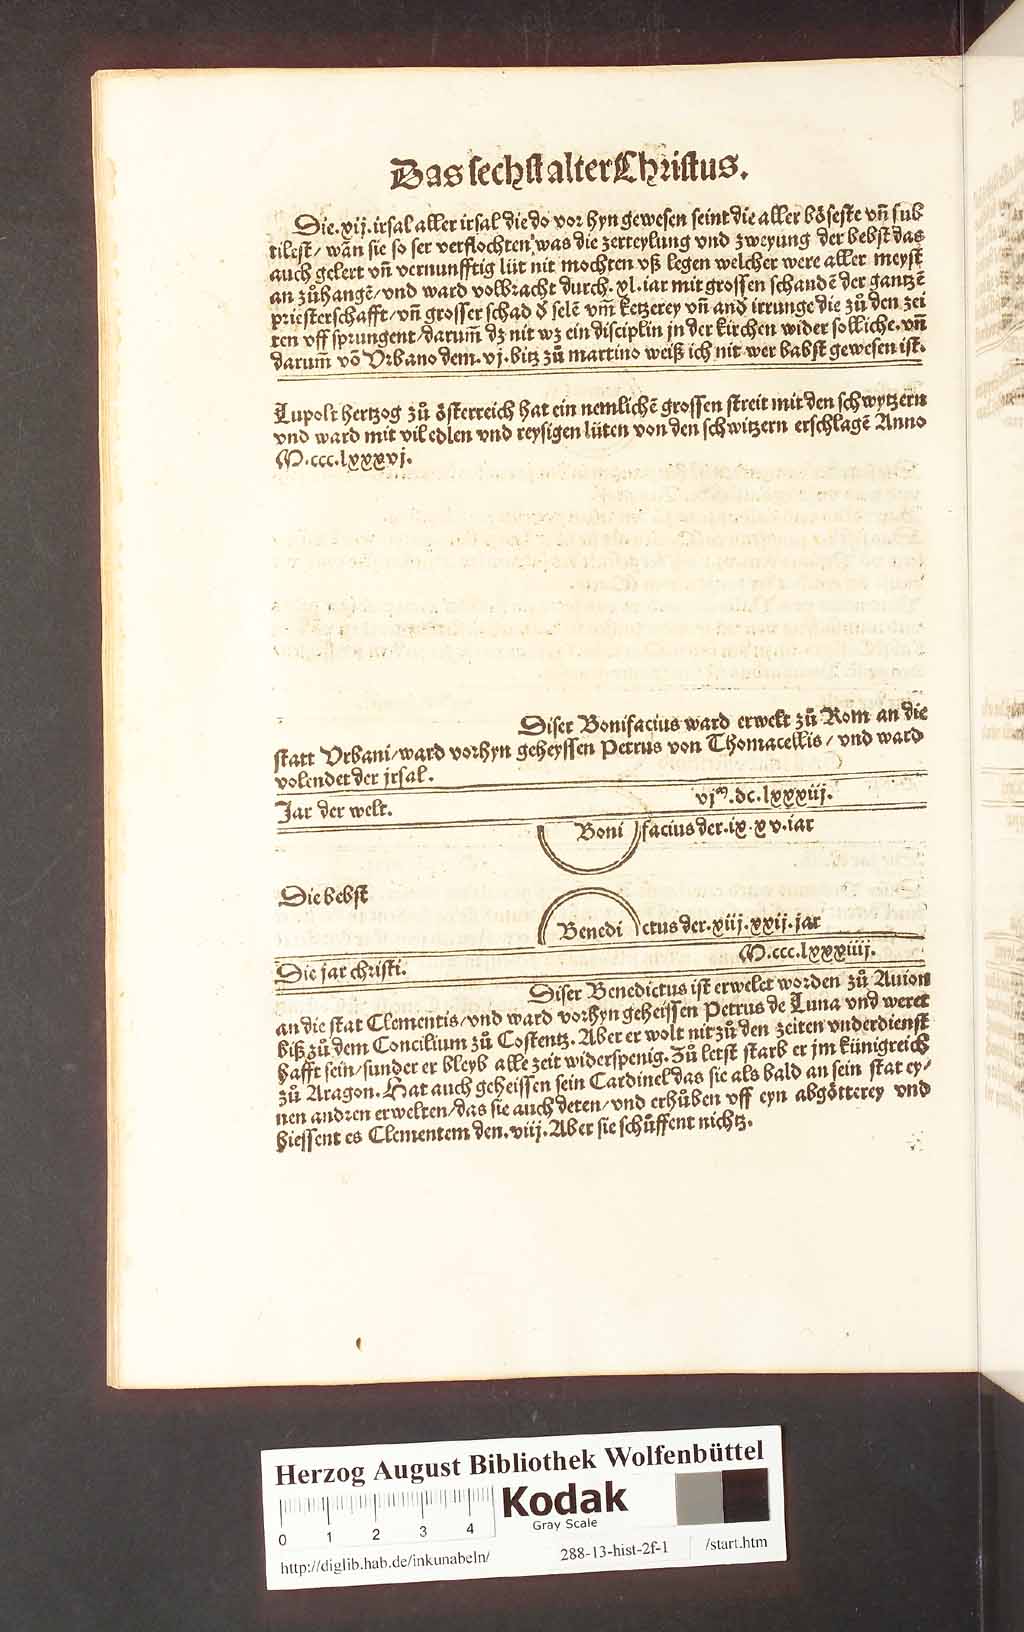 Das sechst alter Christus.
Die .xij. irsal aller irsal die do vor hyn gewesen seint die aller böseste vn̄ sub
tilest / wān sie so ser verflochten was die zerteylung vnd zweyung der bebst das
auch gelert vn̄ vernunfftig lüt nit mochten vß legen welcher were aller meyst
an zůhangē / vnd ward volbracht durch .xl. iar mit grossen schandē der gantzē
priesterschafft / vn̄ grosser schad d̕ selē vm̄ ketzerey vn̄ and̕ irrunge die zů den zei
ten vff sprungent / darum̄ dz nit wz ein disciplin jn der kirchen wider solliche. vn̄
darum̄ vō Vrbano dem .vj. bitz zů martino weiß ich nit wer babst gewesen ist.
Lupolt hertzog zů österreich hat ein nemlichē grossen streit mit den schwytzern
vnd ward mit vil edlen vnd reysigen lüten von den schwitzern erschlagē Anno
M.ccc.lxxxvj.
Diser Bonifacius ward erwelt zů Rom an die
statt Vrbani / ward vorhyn geheyssen Petrus von Thomacellis / vnd ward
volendet der jrsal.
Jar der welt. vjᵐ.dc.lxxxiij.
Boni facius der .ix. xv. iar
Die bebst
Benedi ctus der .xiij. xxij. jar
Die jar christi. M.ccc.lxxxiiij.
Diser Benedictus ist erwelet worden zů Auion
an die stat Clementis / vnd ward vorhyn geheissen Petrus de Luna vnd weret
biß zů dem Concilium zů Costentz. Aber er wolt nit zů den zeiten vnderdienst
hafft sein / sunder er bleyb alle zeit widerspenig. Zů letst starb er jm künigreich
zů Aragon. Hat auch geheissen sein Cardinel das sie als bald an sein stat ey⸗
nen andren erwelten / das sie auch deten / vnd erhůben vff eyn abgötterey vnd
hiessent es Clementem den .viij. Aber sie schůffent nichtz.
Herzog August Bibliothek Wolfenbüttel
Kodak
Gray Scale
0 1 2 3 4
http://diglib.hab.de/inkunabeln/ 288-13-hist-2f-1 /start.htm